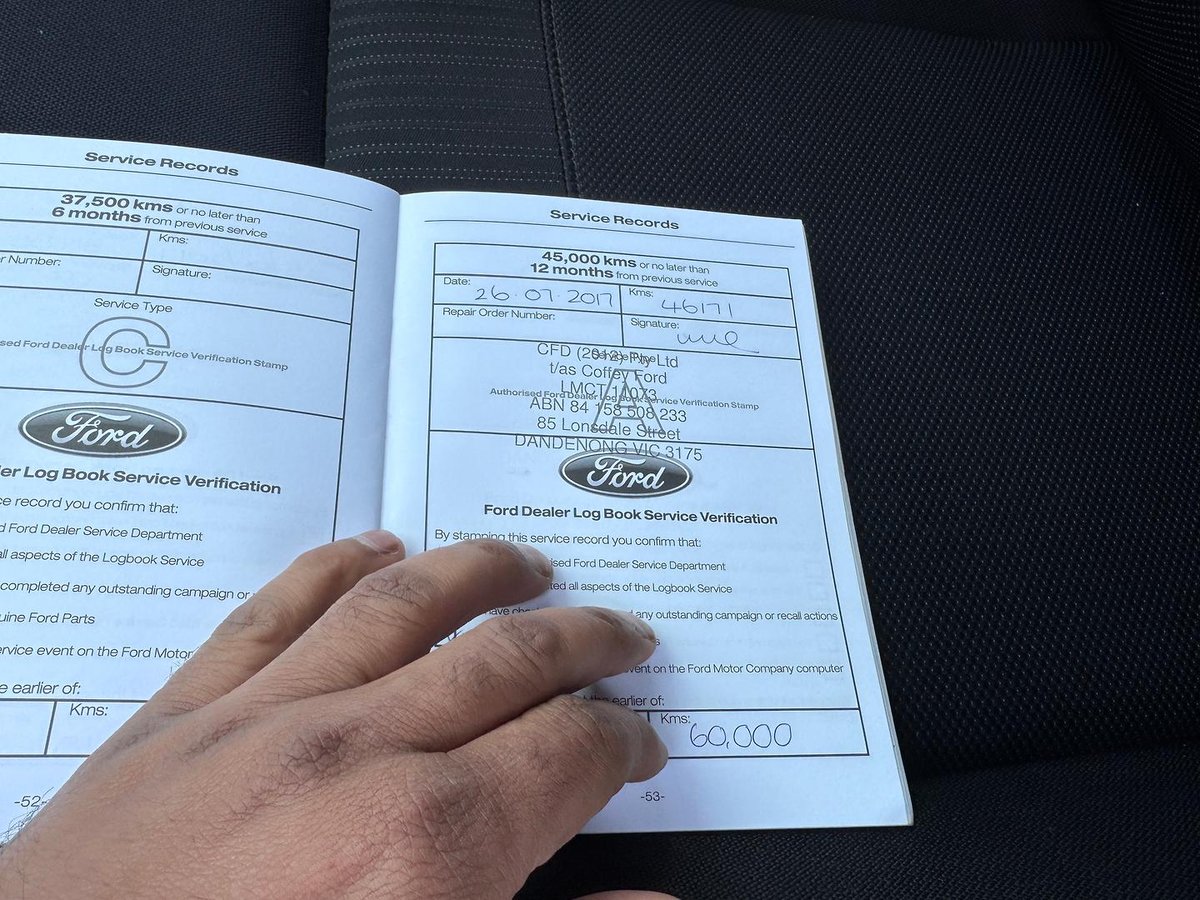 Service Records
37,500 kms or no later than
6 months from previous service
Kms:
r Number:
Signature:
Service Type
C
sed Ford Dealer Log Book Service Verification Stamp
Ford
ler Log Book Service Verification
ce record you confirm that:
d Ford Dealer Service Department
all aspects of the Logbook Service
completed any outstanding campaign or
uine Ford Parts
ervice event on the Ford Motor
e earlier of:
Kms:
-52-
Service Records
45,000 kms or no later than
12 months from previous service
Date: 26.07.2017
Kms: 46171
Repair Order Number:
Signature:
Service Type
CFD (2012) Pty Ltd
t/as Coffey Ford
LMCT 11073
A
Authorised Ford Dealer Log Book Service Verification Stamp
ABN 84 158 508 233
85 Lonsdale Street
DANDENONG VIC 3175
Ford
Ford Dealer Log Book Service Verification
By stamping this service record you confirm that:
ised Ford Dealer Service Department
ted all aspects of the Logbook Service
have any outstanding campaign or recall actions
s
vent on the Ford Motor Company computer
the earlier of:
Kms: 60,000
-53-